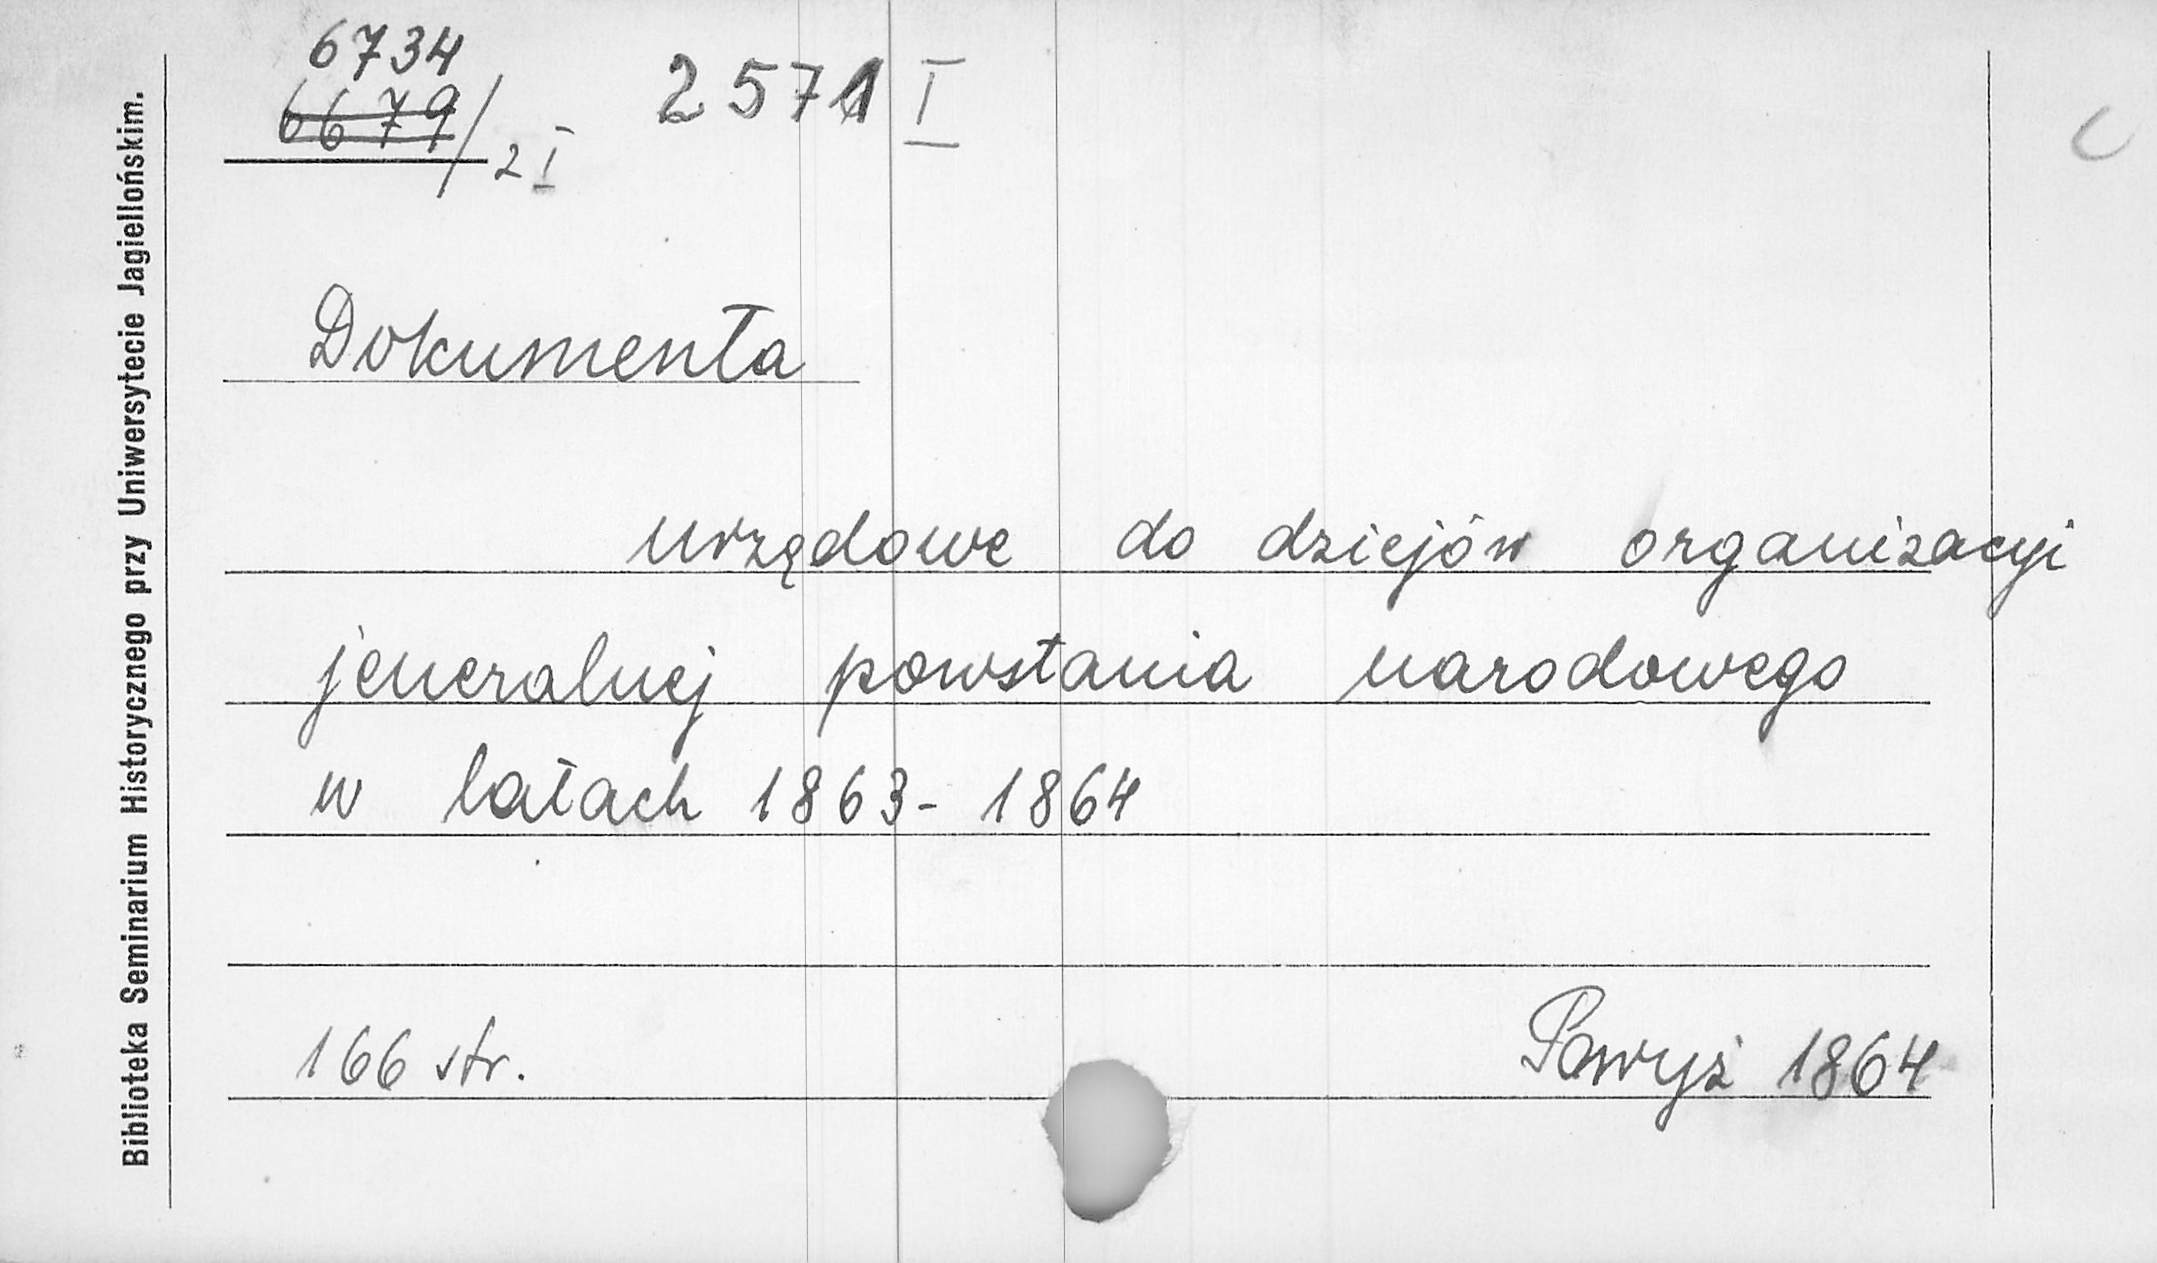 6734
6679/2 I
2571 I
C
Dokumenta
urzędowe do dziejów organizacyi
jeneralnej powstania narodowego
w latach 1863-1864
166 str.
Paryż 1864
Biblioteka Seminarium Historycznego przy Uniwersytecie Jagiellońskim.